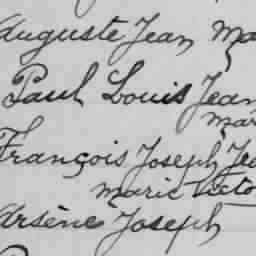 Auguste Jean Ma
Paul Louis Jean
Mar
François Joseph Jea
Marie Victo
Arsène Joseph